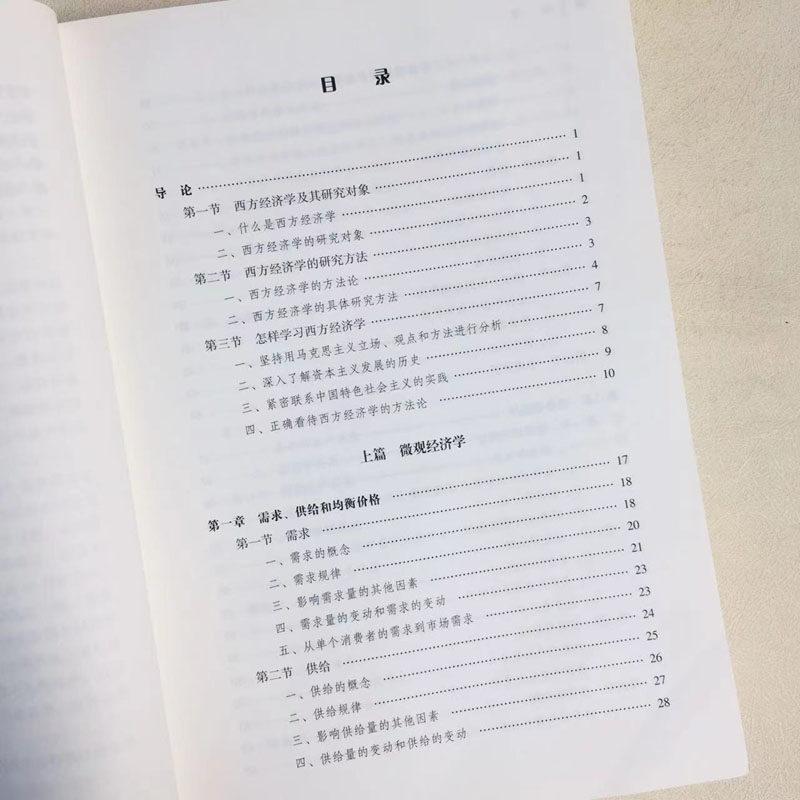 目 录
导 论 …… 1
第一节 西方经济学及其研究对象 …… 1
一、什么是西方经济学 …… 1
二、西方经济学的研究对象 …… 2
第二节 西方经济学的研究方法 …… 3
一、西方经济学的方法论 …… 3
二、西方经济学的具体研究方法 …… 4
第三节 怎样学习西方经济学 …… 7
一、坚持用马克思主义立场、观点和方法进行分析 …… 7
二、深入了解资本主义发展的历史 …… 8
三、紧密联系中国特色社会主义的实践 …… 9
四、正确看待西方经济学的方法论 …… 10
上篇 微观经济学
第一章 需求、供给和均衡价格 …… 17
第一节 需求 …… 18
一、需求的概念 …… 18
二、需求规律 …… 20
三、影响需求量的其他因素 …… 21
四、需求量的变动和需求的变动 …… 23
五、从单个消费者的需求到市场需求 …… 23
第二节 供给 …… 24
一、供给的概念 …… 25
二、供给规律 …… 26
三、影响供给量的其他因素 …… 27
四、供给量的变动和供给的变动 …… 28